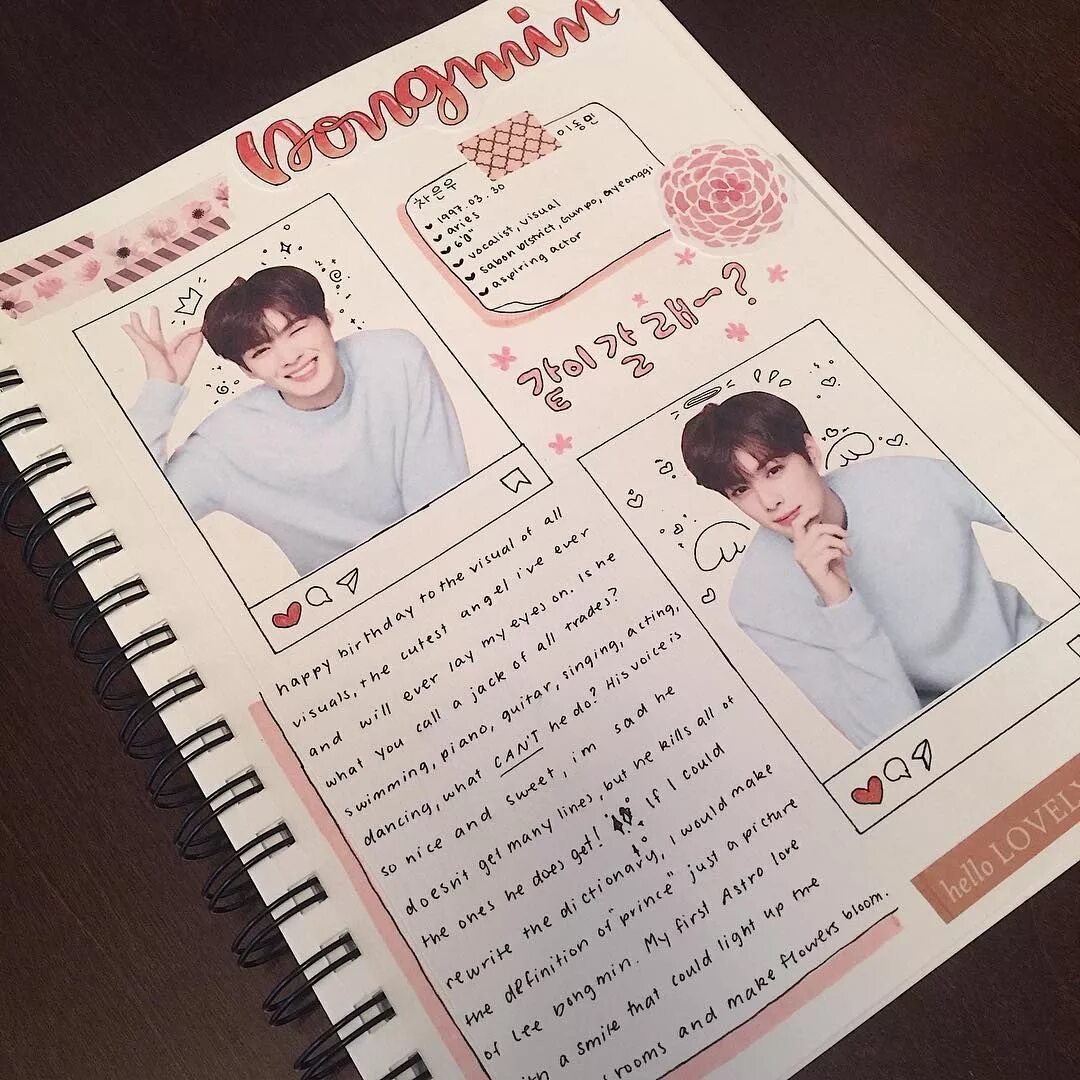 Dongmin
차은우
이동민
1997.03.30
aries
6'0"
vocalist, visual
Sabon District, Gunpo, Gyeonggi
aspiring actor
같이 갈래~?
happy birthday to the visual of all
visuals, the cutest angel i've ever
and will ever lay my eyes on. Is he
what you call a jack of all trades?
swimming, piano, guitar, singing, acting,
dancing, what CAN'T he do? His voice is
so nice and sweet, i'm sad he
doesn't get many lines, but he kills all of
the ones he does get! If I could
rewrite the dictionary, I would make
the definition of "prince" just a picture
of Lee Dongmin. My first Astro love
a smile that could light up the
rooms and make flowers bloom.
hello LOVELY